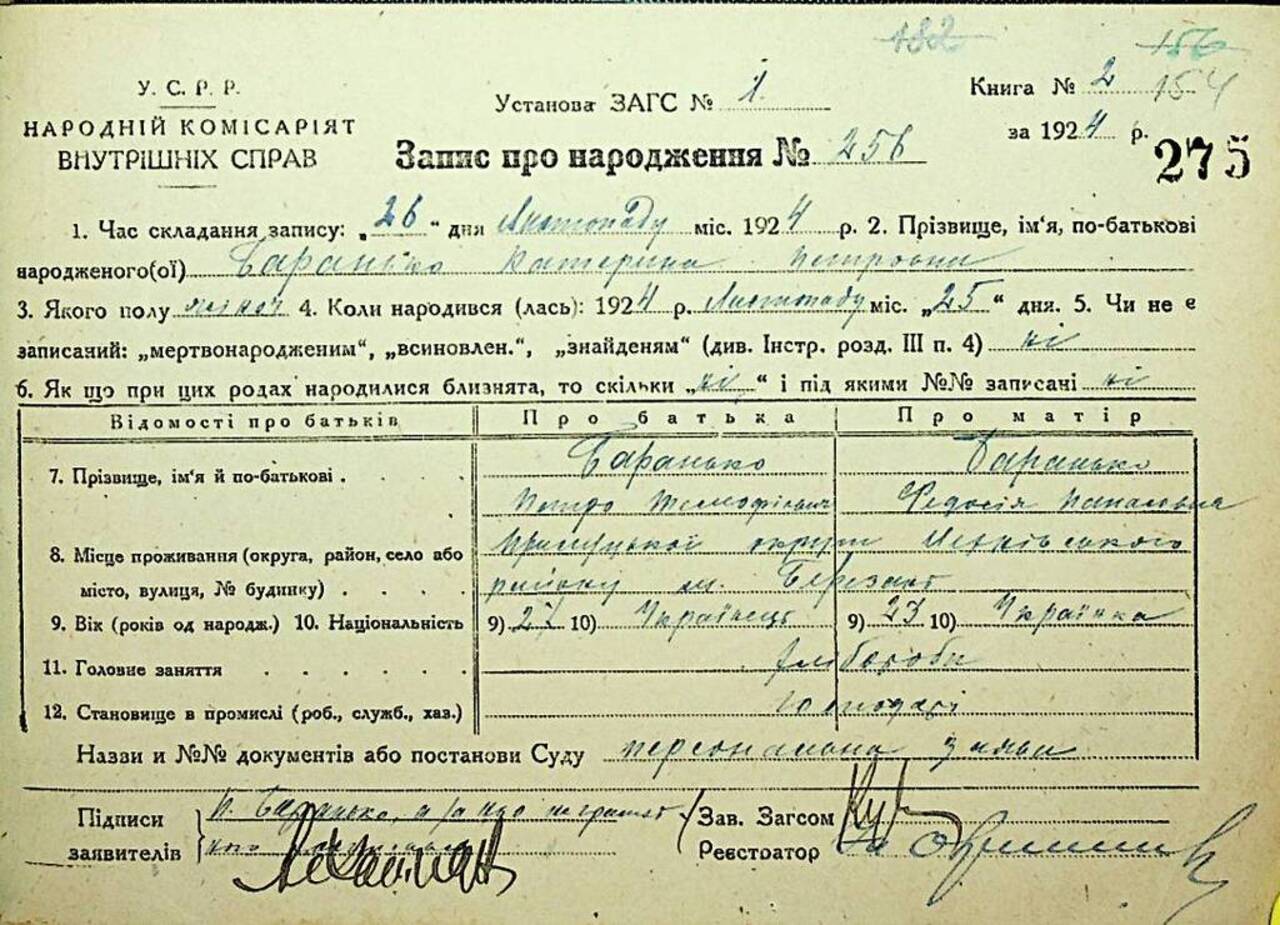 182 156
У. С. Р. Р. Установа ЗАГС № 1. Книга № 2 154
НАРОДНІЙ КОМІСАРІЯТ за 1924 р.
ВНУТРІШНІХ СПРАВ Запис про народження № 256 275
1. Час складання запису: „26“ дня Листопаду міс. 1924 р. 2. Прізвище, ім‘я, по-батькові
народженого(ої) Баранько Катерина Петровна
3. Якого полу жіноч 4. Коли народився (лась): 1924 р. Листопаду міс. „25“ дня. 5. Чи не є
записаний: „мертвонародженим“, „всиновлен.“, „знайденям“ (див. Інстр. розд. III п. 4) ні
6. Як що при цих родах народилися близнята, то скільки „ні“ і під якими №№ записані ні
Відомості про батьків Про батька Про матір
7. Прізвище, ім‘я й по-батькові . . . . Баранько Баранько
Петро Тимофієвич Федосія
8. Місце проживання (округа, район, село або Прилуцької округи
місто, вулиця, № будинку) . . . . району м. Березань
9. Вік (років од народж.) 10. Національність 9) 27 10) Українець 9) 23 10) Українка
11. Головне заняття . . . . . . хлібороби
12. Становище в промислі (роб., служб., хаз.) господарі
Назви и №№ документів або постанови Суду персональна заява
Підписи П. Баранько, а за його неграмот Зав. Загсом
заявителів Реєстратор